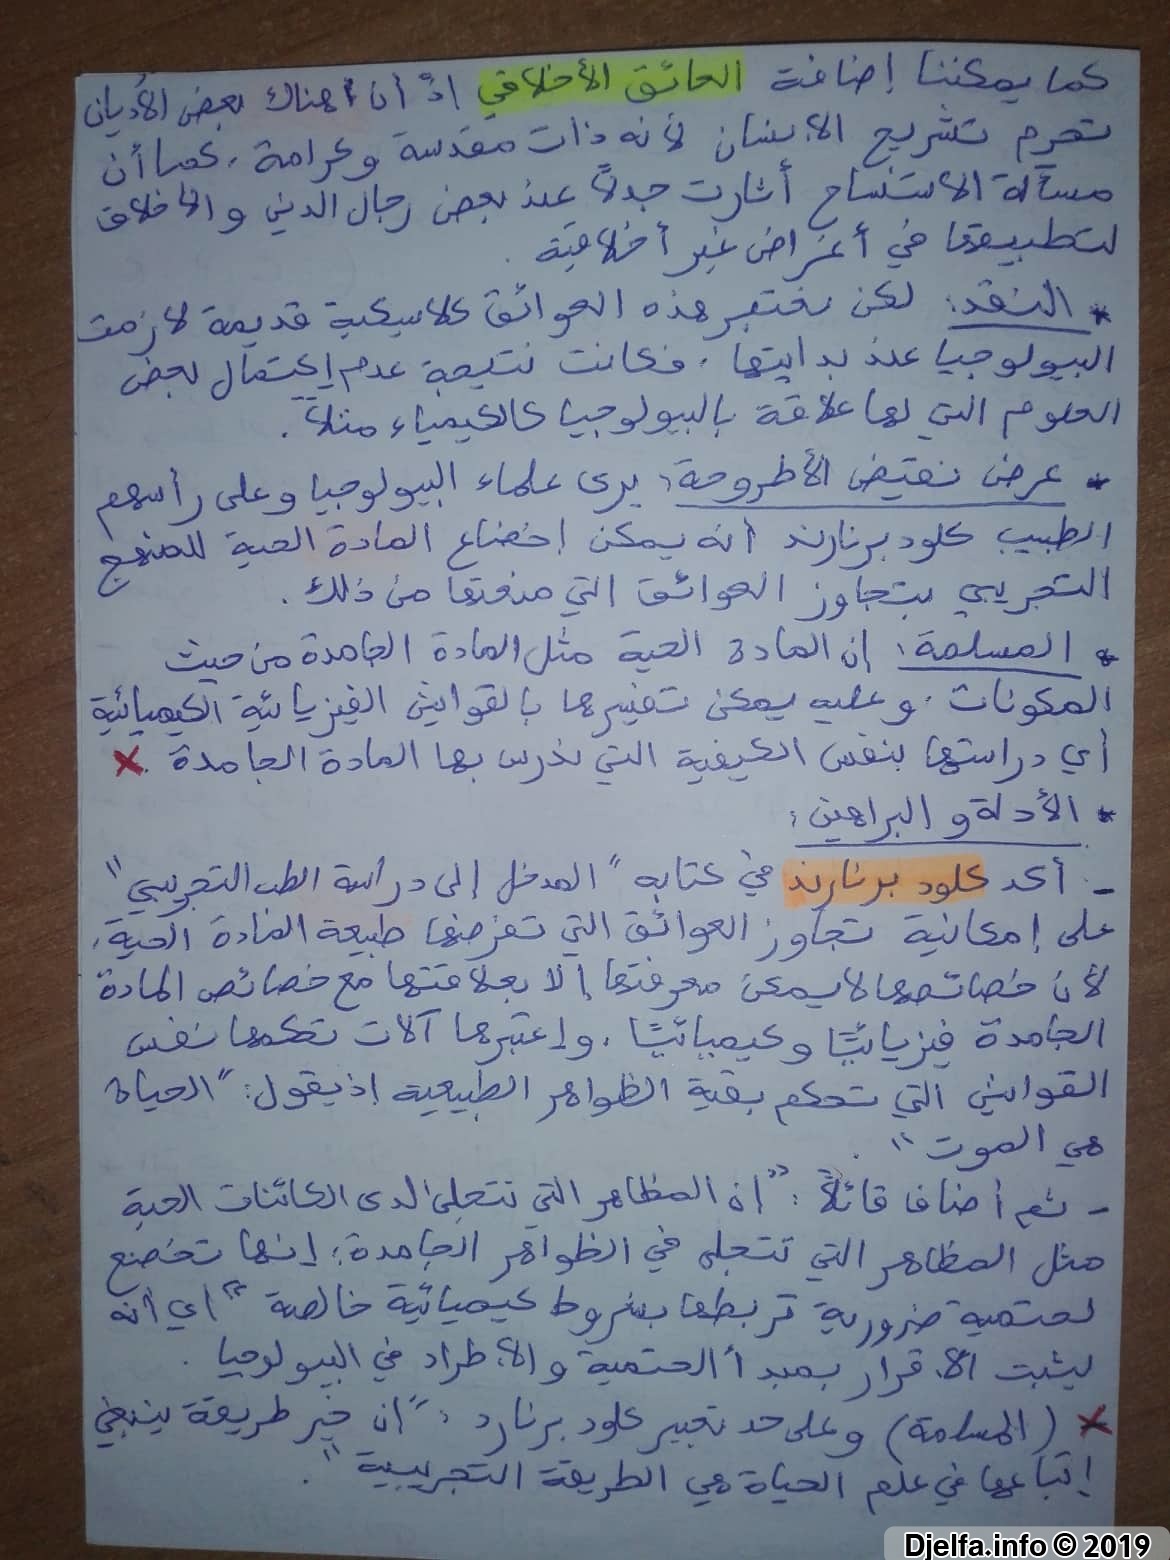 كما يمكننا إضافة العائق الأخلاقي إذ أن هناك بعض الأديان
تحرم تشريح الإنسان لأنه ذات مقدسة وكرامة، كما أن
مسألة الاستنساخ أثارت جدلاً عند بعض رجال الدين والأخلاق
لتطبيقها في أغراض غير أخلاقية .
* النقد: لكن نعتبر هذه العوائق كلاسيكية قديمة لازمت
البيولوجيا عند بدايتها، فكانت نتيجة عدم إكتمال بعض
العلوم التي لها علاقة بالبيولوجيا كالكيمياء مثلاً.
* عرض نقيض الأطروحة: يرى علماء البيولوجيا وعلى رأسهم
الطبيب كلود برنارند أنه يمكن إخضاع المادة الحية للمنهج
التجريبي بتجاوز العوائق التي منعتها من ذلك.
* المسلمة: إن المادة الحية مثل المادة الجامدة من حيث
المكونات، وعليه يمكن تفسيرها بالقوانين الفيزيائية الكيميائية
أي دراستها بنفس الكيفية التي ندرس بها المادة الجامدة. ×
* الأدلة و البراهين:
- أكد كلود برنارند في كتابه "المدخل إلى دراسة الطب التجريبي"
على إمكانية تجاوز العوائق التي تفرضها طبيعة المادة الحية،
لأن خصائصها لا يمكن معرفتها إلا بعلاقتها مع خصائص المادة
الجامدة فيزيائيًا وكيميائيًا، وإعتبرها آلات تحكمها نفس
القوانين التي تحكم بقية الظواهر الطبيعية إذ يقول: "الحياة
هي الموت".
- ثم أضاف قائلاً: "إن المظاهر التي تتجلى لدى الكائنات الحية
مثل المظاهر التي تتجلى في الظواهر الجامدة؛ إنها تخضع
لحتمية ضرورية تربطها بشروط كيميائية خالصة" أي أنه
يثبت الإقرار بمبدأ الحتمية والإطراد في البيولوجيا .
× (المسلمة) وعلى حد تعبير كلود برنارد: "إن خير طريقة ينبغي
إتباعها في علم الحياة هي الطريقة التجريبية".
Djelfa.info © 2019